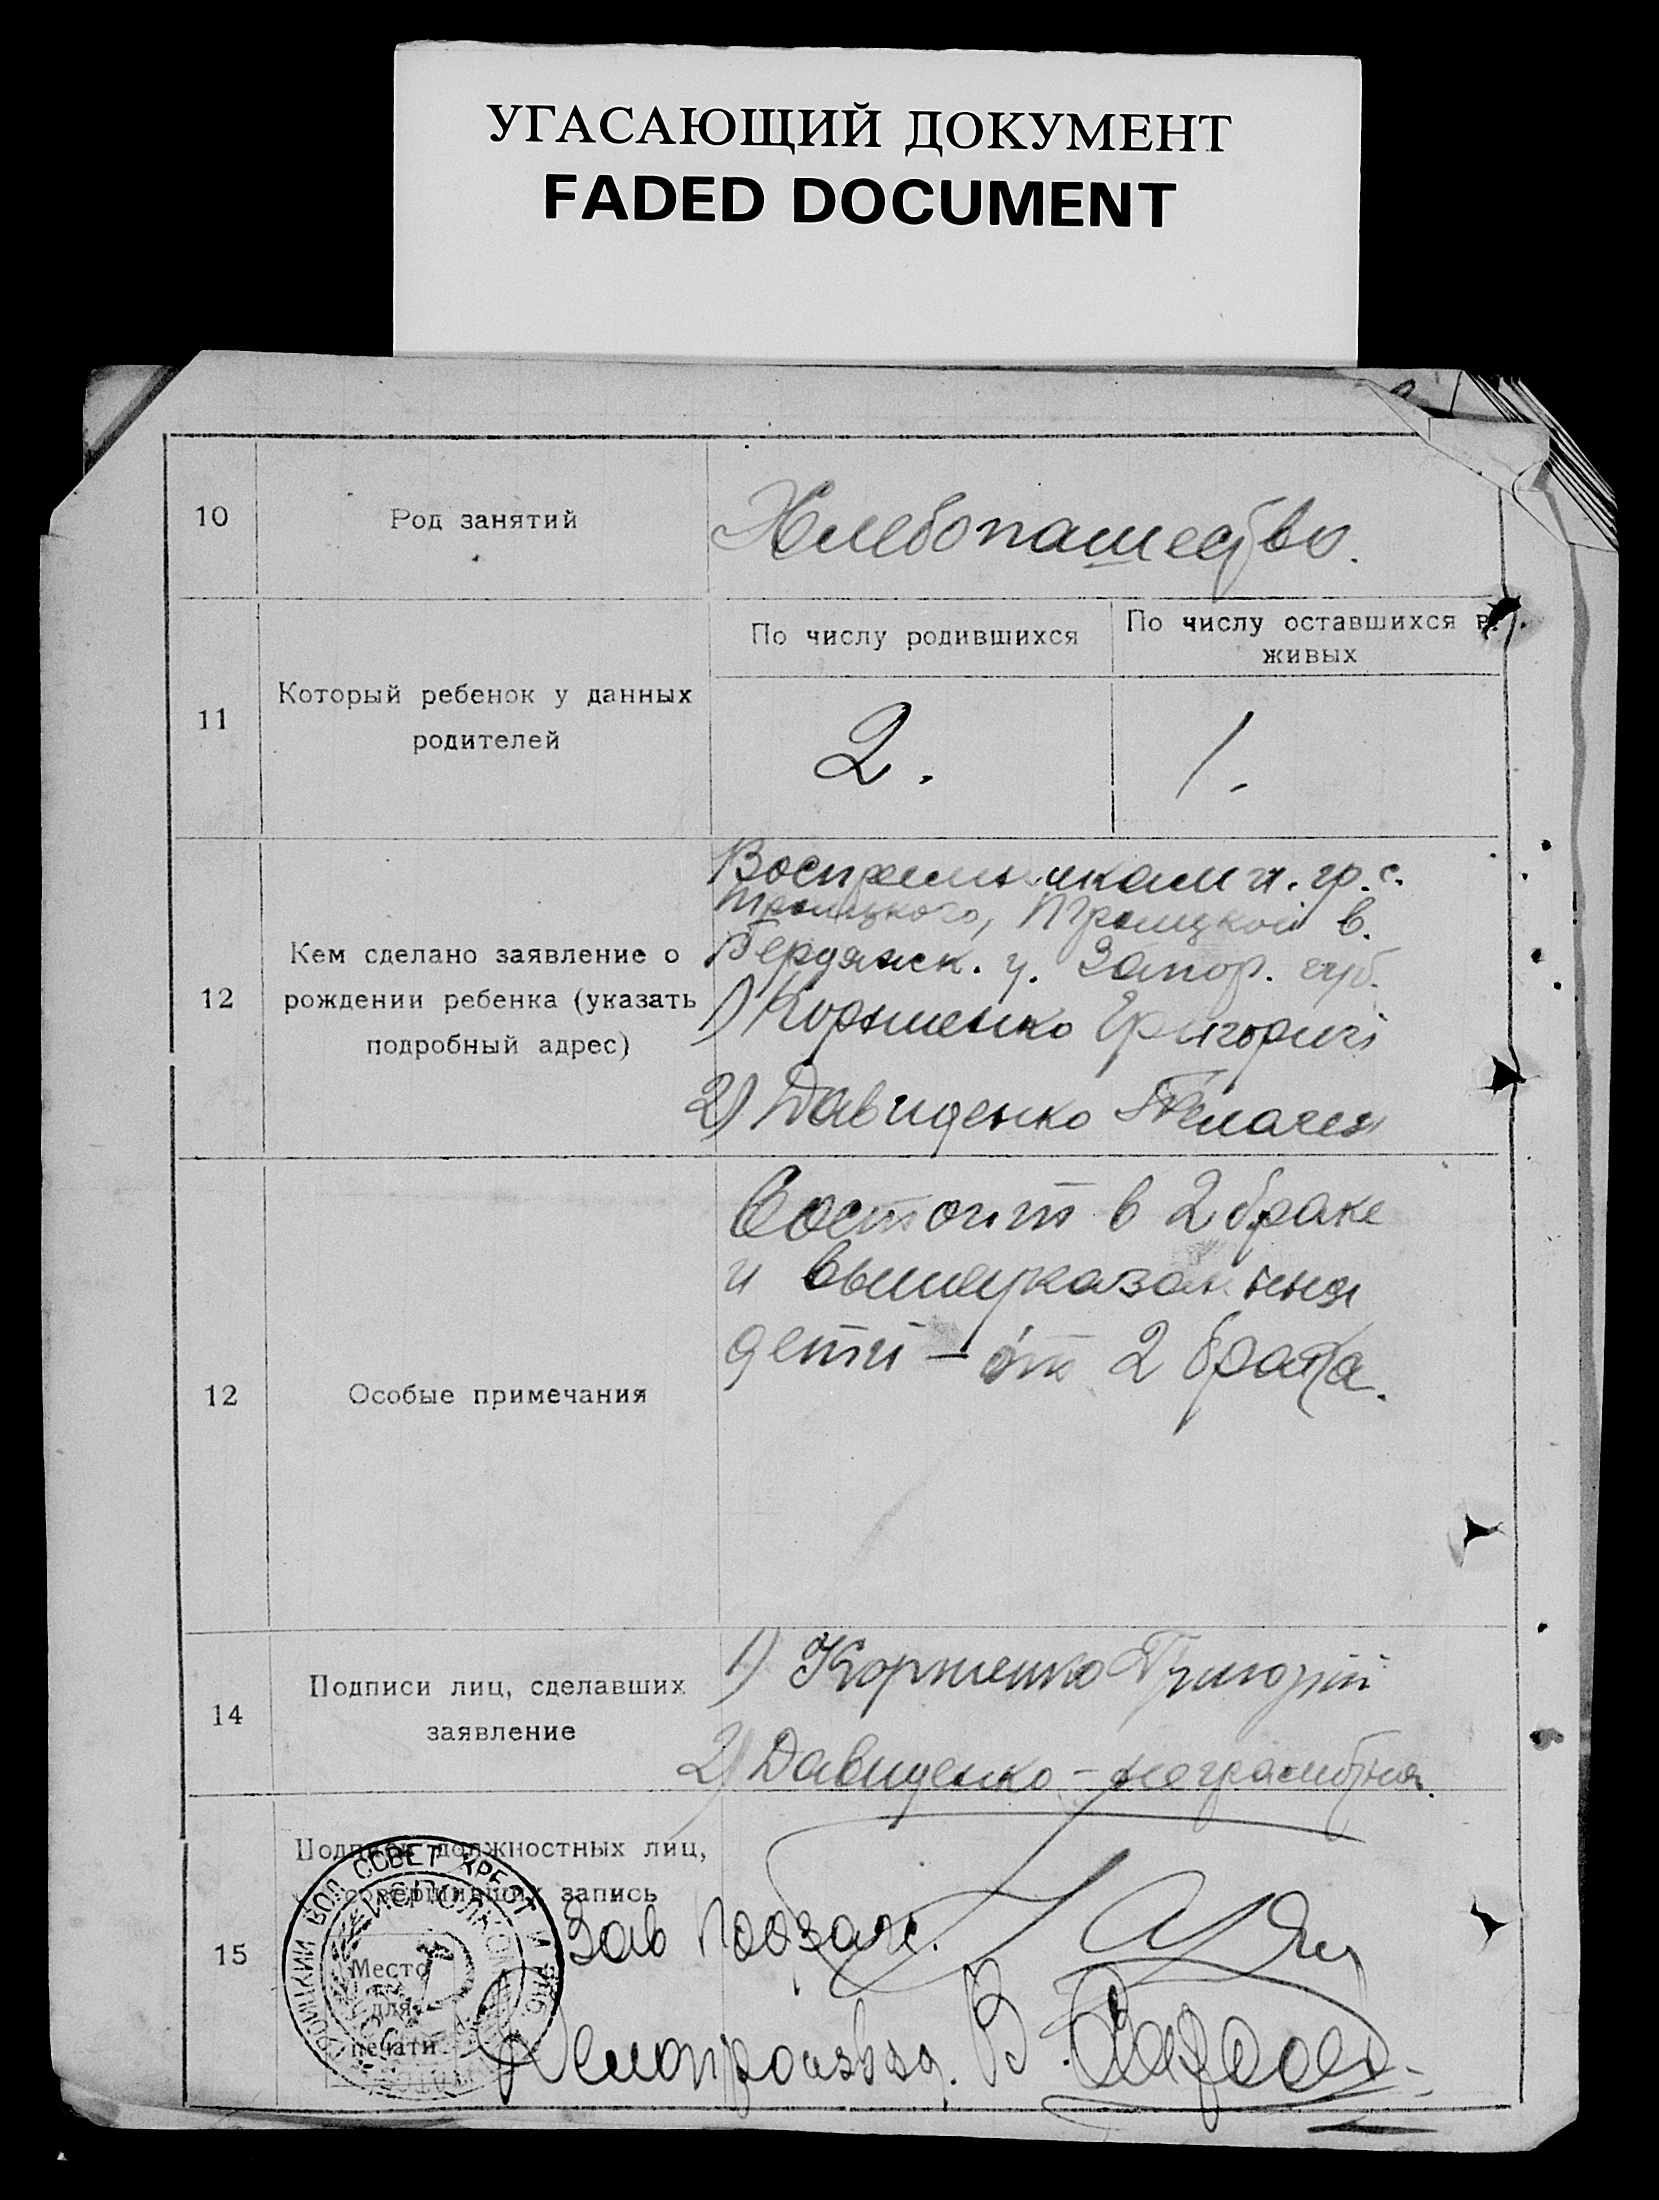 УГАСАЮЩИЙ ДОКУМЕНТ
FADED DOCUMENT
10
Род занятий
Хлебопашество.
11
Который ребенок у данных
родителей
По числу родившихся
По числу оставшихся в
живых
2.
1.
12
Кем сделано заявление о
рождении ребенка (указать
подробный адрес)
Восприемниками. гр. с.
Троицкого, Троицкой в.
Бердянск. у. Запор. губ.
1) Коршенко Григорий
2) Давиденко Пелагея
12
Особые примечания
Состоит в 2 браке
и вышеуказанныя
дети - от 2 брака.
14
Подписи лиц, сделавших
заявление
1) Коршенко Григорій
2) Давиденко - неграмотная.
15
Подписи должностных лиц,
совершивших запись
Место
для
печати
ВОЛ СОВЕТ КРЕСТ И
ИСПОЛКОМ
Зав Подзагс.
Делопроизвод. В.